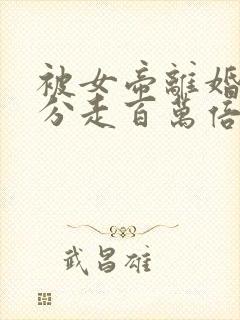 被女帝離婚
分走百萬倍
武昌雄